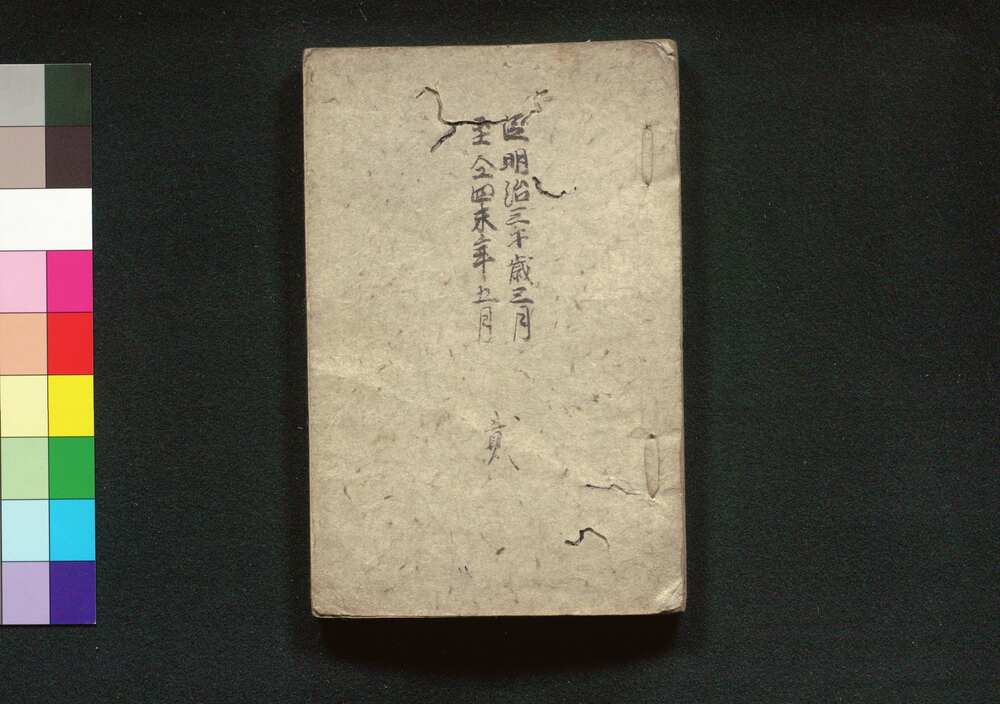 自明治三十歳三月
至仝四年五月
貳